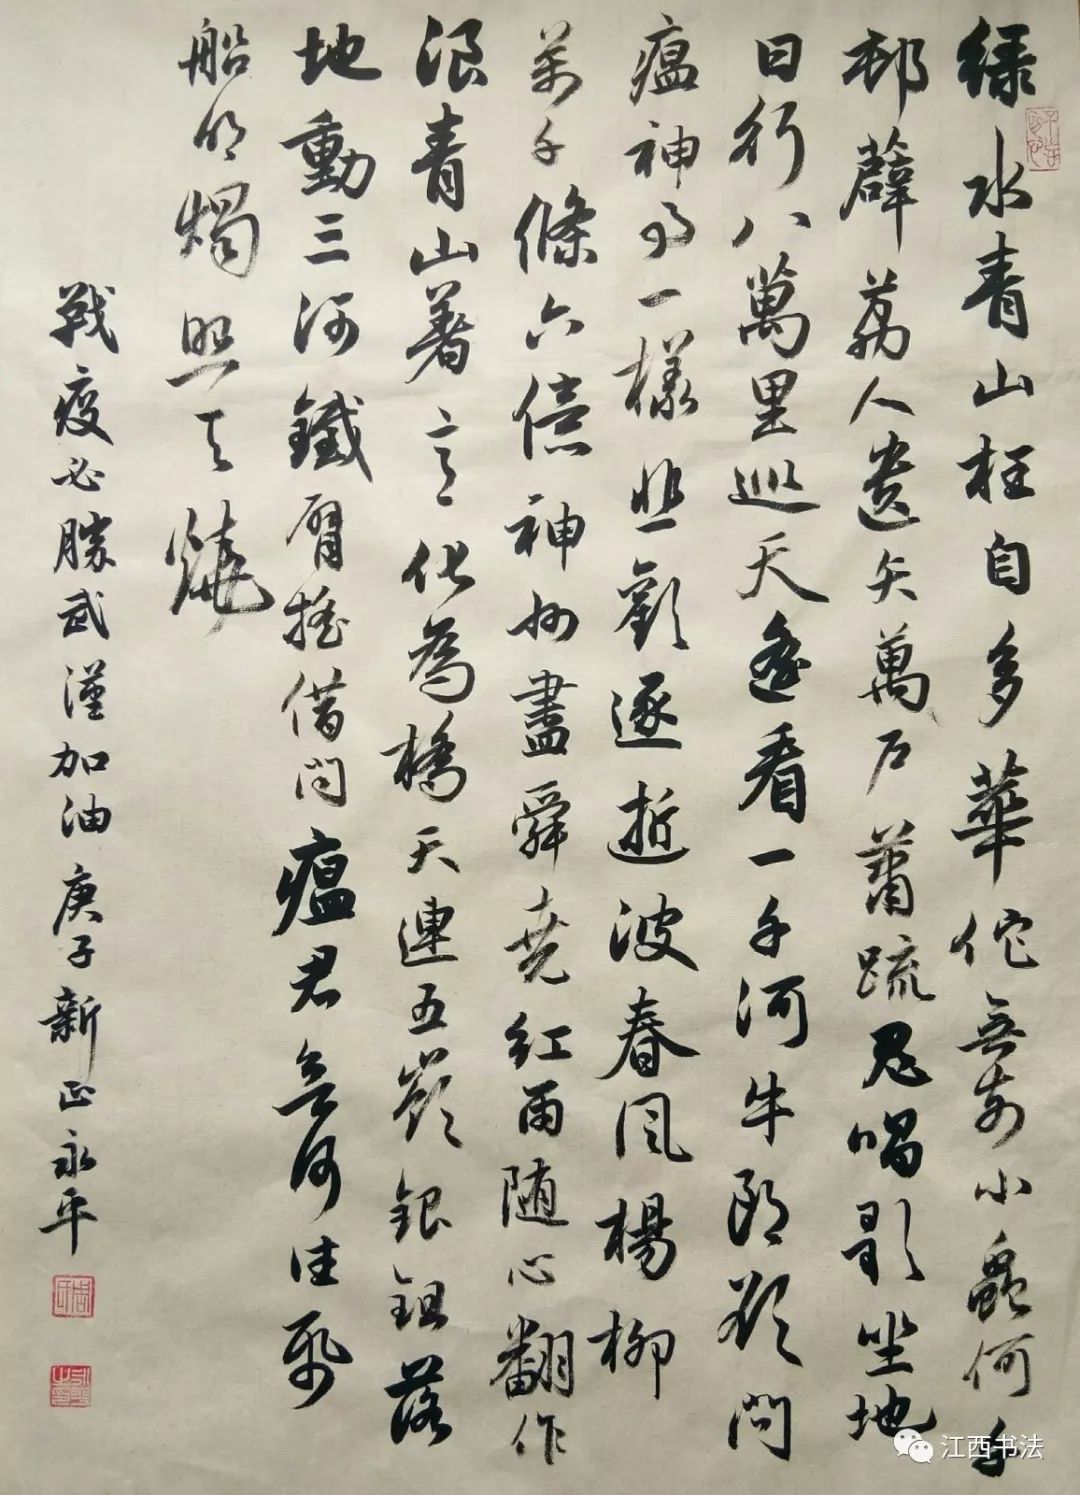 绿水青山枉自多華佗無奈小蟲何千
邨薜荔人遗矢萬户蕭疏鬼唱歌坐地
日行八萬里巡天遥看一千河牛郎欲問
瘟神事一樣悲歡逐逝波春風楊柳
萬千條六億神州盡舜堯紅雨随心翻作
浪青山著意化為橋天連五嶺銀鉏落
地動三河鐵臂摇借問瘟君欲何往紙
船明燭照天燒
戰疫必勝武漢加油庚子新正永平
江西书法